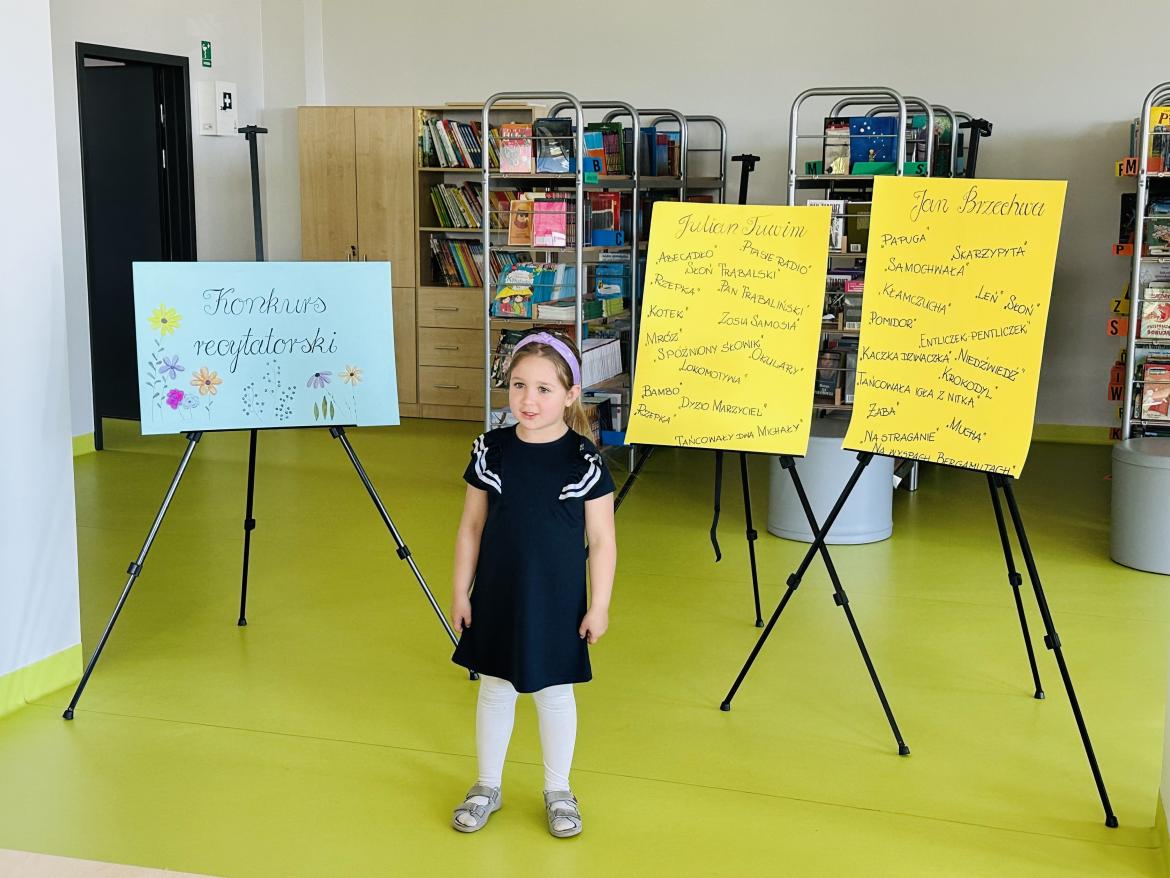 Konkurs
recytatorski
Julian Tuwim
„Abecadło" „Ptasie radio"
„Słoń Trąbalski"
„Rzepka" „Pan Trąbaliński"
„Kotek" „Zosia Samosia"
„Mróz"
„Spóźniony słowik" „Okulary"
„Lokomotywa"
„Bambo" „Dyzio Marzyciel"
„Rzepka"
„Tańcowały dwa Michały"
Jan Brzechwa
„Papuga"
„Skarżypyta"
„Samochwała"
„Kłamczucha" „Leń" „Słoń"
„Pomidor"
„Entliczek-pentliczek"
„Kaczka dziwaczka" „Niedźwiedź"
„Krokodyl"
„Tańcowała igła z nitką"
„Żaba" „Mucha"
„Na straganie"
„Na wyspach Bergamutach"
M
S
B
C
M
P
Z
S
W
K